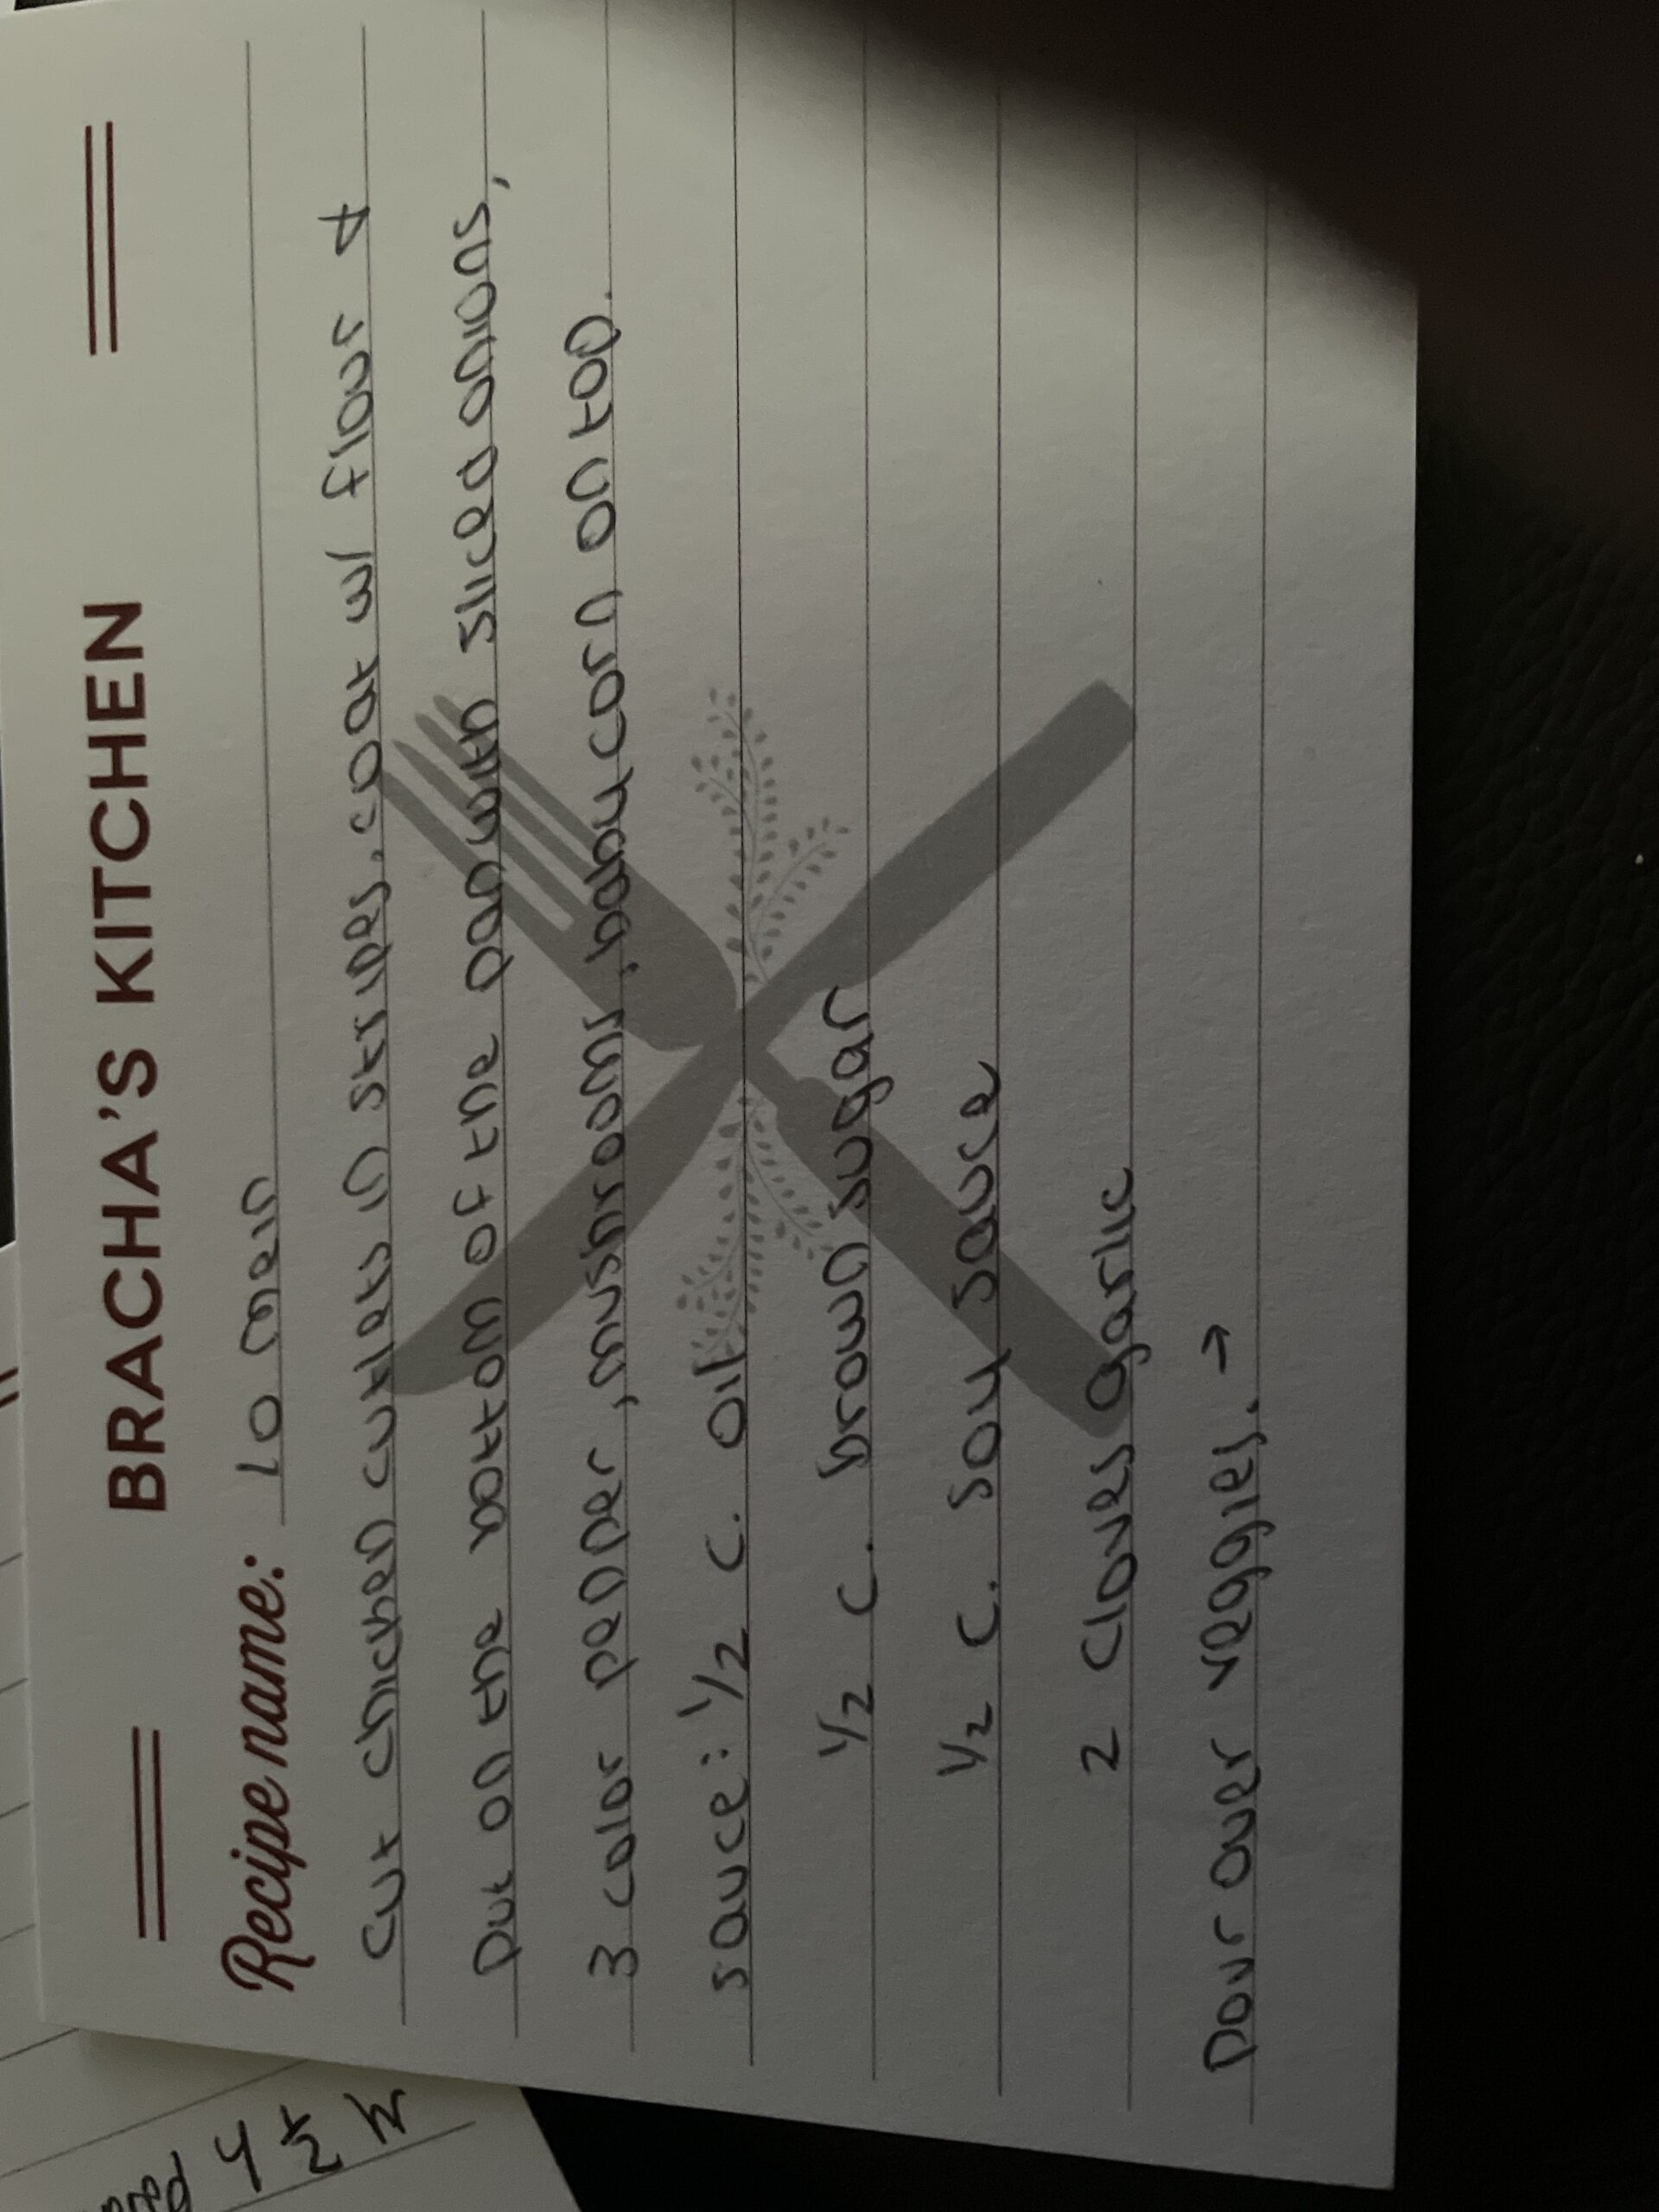 BRACHA'S KITCHEN
Recipe name: lo mein
cut chicken cutlets in stripes. coat w/ flour &
put on the bottom of the pan with sliced onions,
3 color pepper, mushrooms, baby corn on top.
sauce: 1/2 c. oil
1/2 c. brown sugar
1/2 c. soy sauce
2 cloves garlic
pour over veggies. →
4 1/2 hr